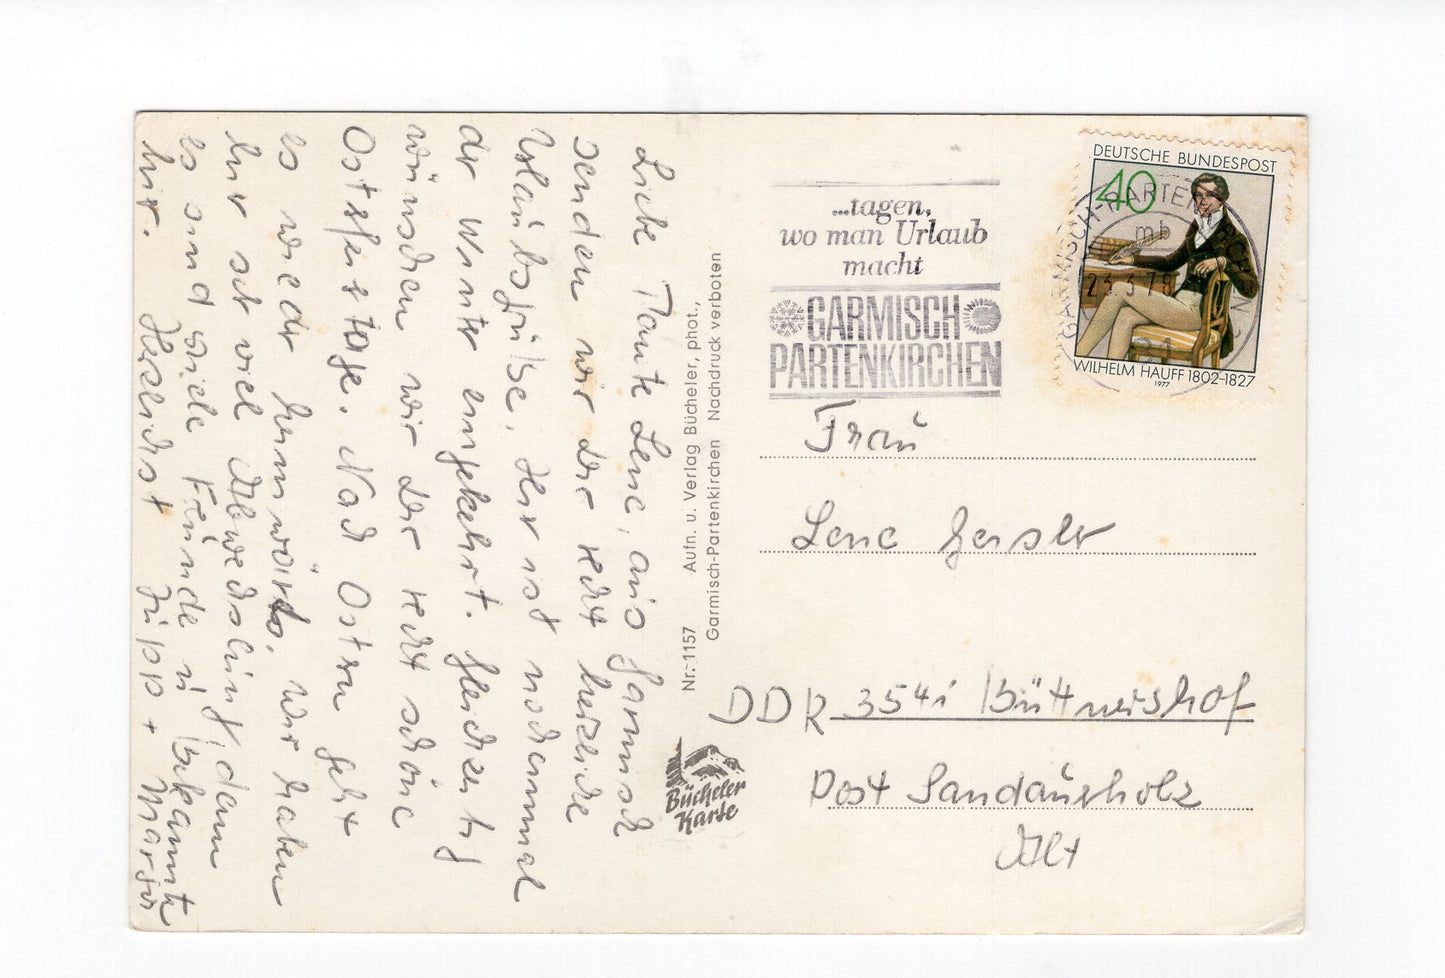 Liebe Tante Lene, aus Garmisch
senden wir Dir recht herzliche
Urlaubsgrüße. Hier ist nochenmal
der Winter eingekehrt. Gleichzeitig
wünschen wir Dir recht schöne
Osterfesttage. Nach Ostern geht
es wieder heimwärts. Wir haben
hier sehr viel Abwechslung, denn
es sind viele Freunde u. Bekannte
hier. Herzlichst Jupp +
Nr. 1157 Aufn. u. Verlag Bücheler, phot.,
Garmisch-Partenkirchen Nachdruck verboten
Bücheler
Karte
...tagen,
wo man Urlaub
macht
GARMISCH
PARTENKIRCHEN
DEUTSCHE BUNDESPOST
40
WILHELM HAUFF 1802-1827
1977
GARMISCH-PARTENKIRCHEN
mb
23.3.78
Frau
Lene Geisler
DDR 3541 Büttnershof
Post Sandauerholz
Alt